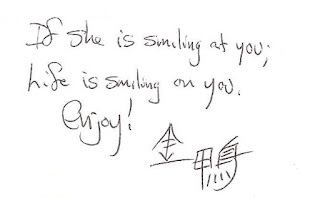 If she is smiling at you;
Life is smiling on you.
Enjoy!
金鴨